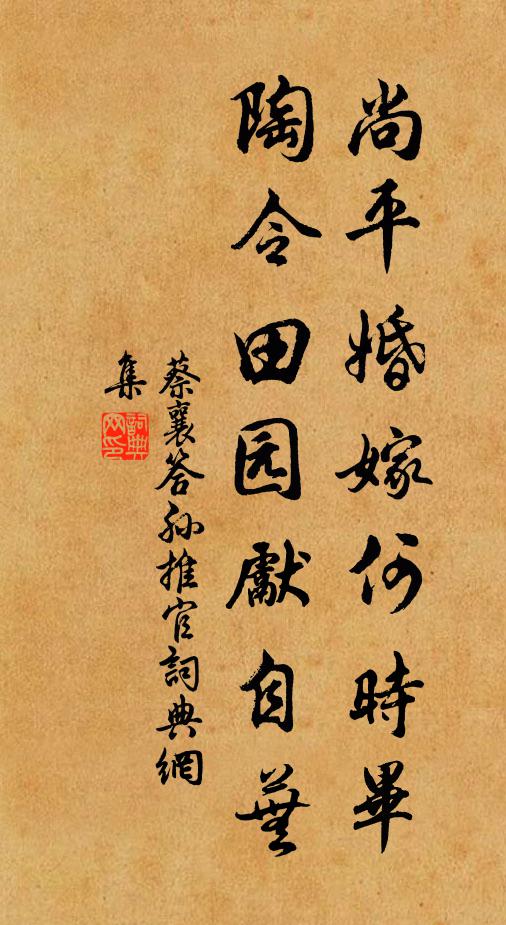 尚平婚嫁何時畢
陶令田园獻自蕪
蔡襄答孙推官詞典網
集
詞典网印